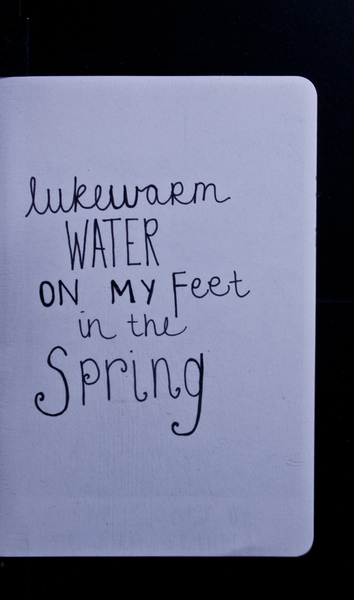 lukewarm
WATER
ON MY Feet
in the
Spring